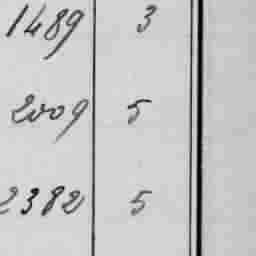 1489 3
2009 5
2382 5